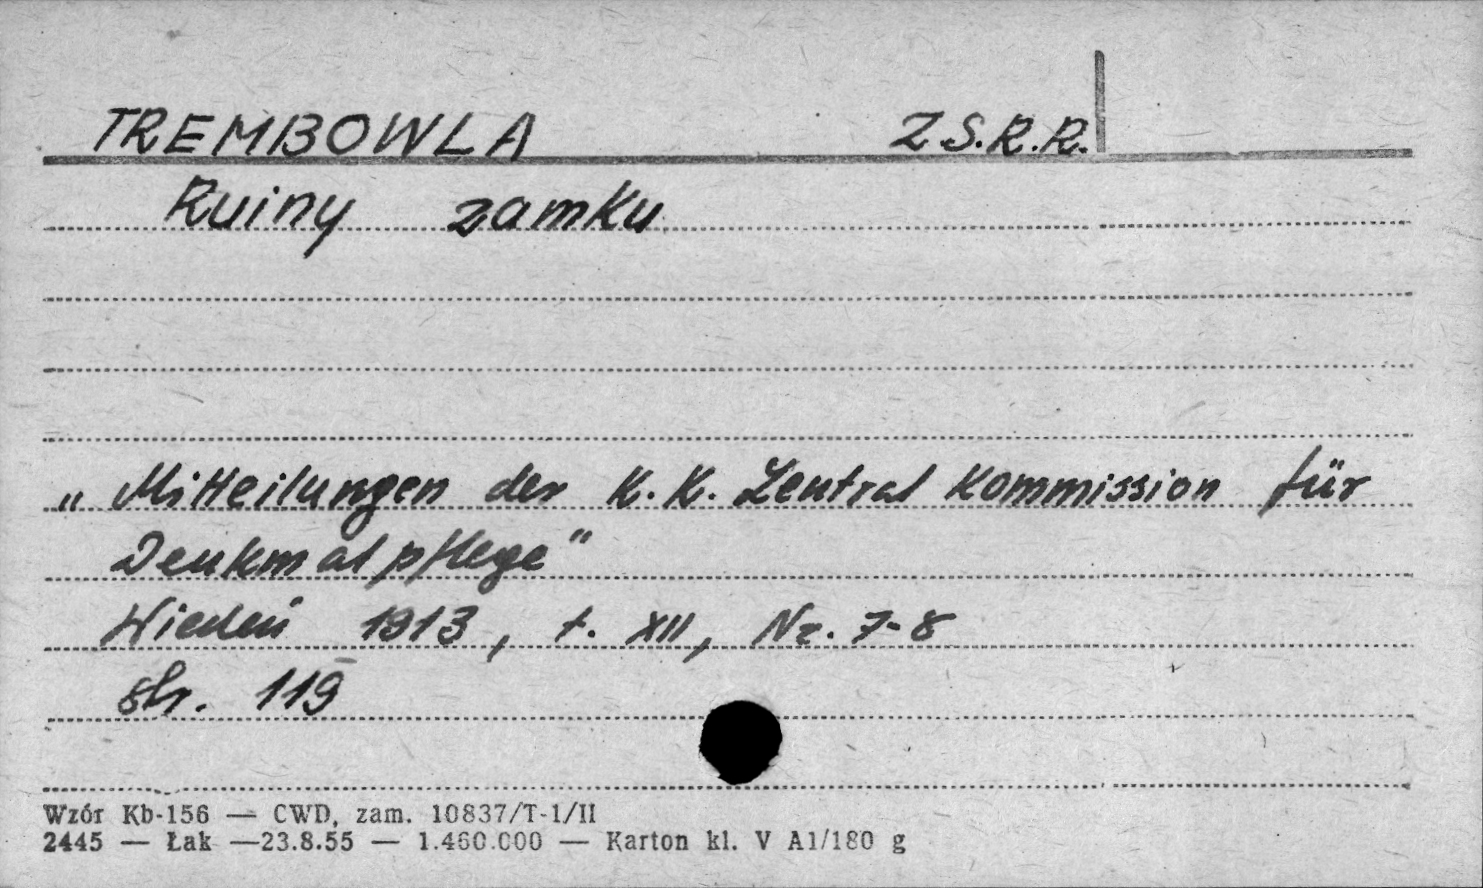 TREMBOWLA Z.S.R.R.
Ruiny zamku
„Mitteilungen der K.K. Zentral Kommission für
Denkmalpflege"
Wiedeń 1913, t. XII, Nr. 7-8
str. 119
Wzór Kb-156 — CWD, zam. 10837/T-1/II
2445 — Łak —23.8.55 — 1.460.000 — Karton kl. V A1/180 g